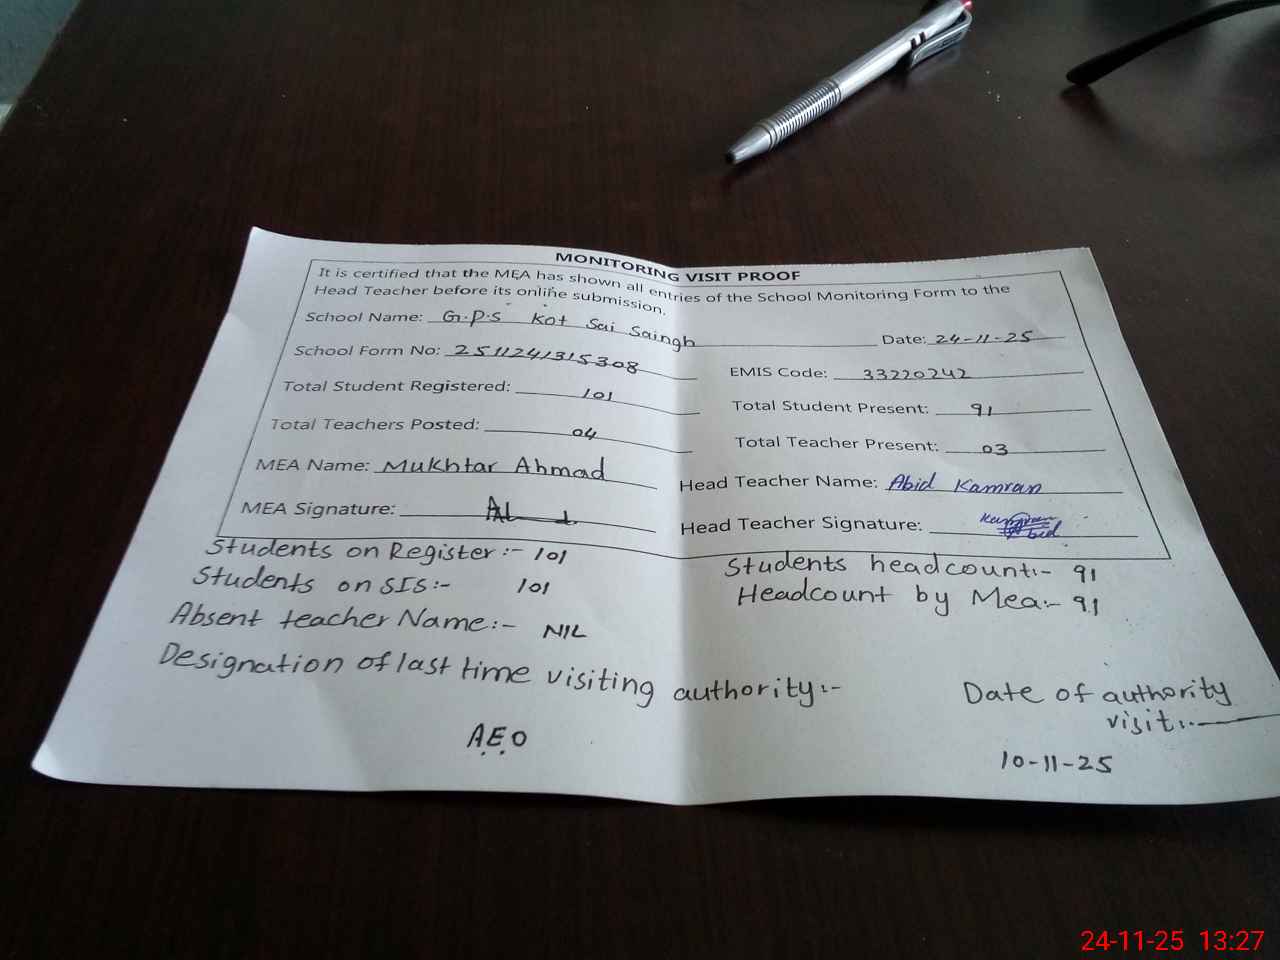 MONITORING VISIT PROOF
It is certified that the MEA has shown all entries of the School Monitoring Form to the
Head Teacher before its online submission.
School Name: G.P.S Kot Sai Saingh Date: 24-11-25
School Form No: 2511241315308 EMIS Code: 33220242
Total Student Registered: 101 Total Student Present: 91
Total Teachers Posted: 04 Total Teacher Present: 03
MEA Name: Mukhtar Ahmad Head Teacher Name: Abid Kamran
MEA Signature: Head Teacher Signature:
Students on Register:- 101 Students headcount:- 91
Students on SIS:- 101 Headcount by Mea:- 91
Absent teacher Name:- NIL
Designation of last time visiting authority:- Date of authority
visit:-
A.E.O 10-11-25
24-11-25 13:27